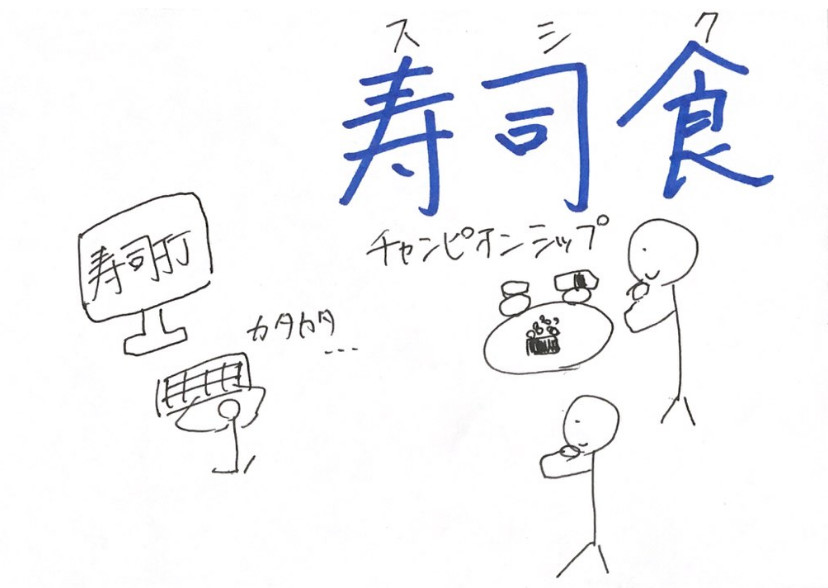 スシク
寿司食
チャンピオンシップ
寿司打
カタカタ
...